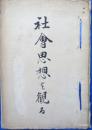 社會思想を観る